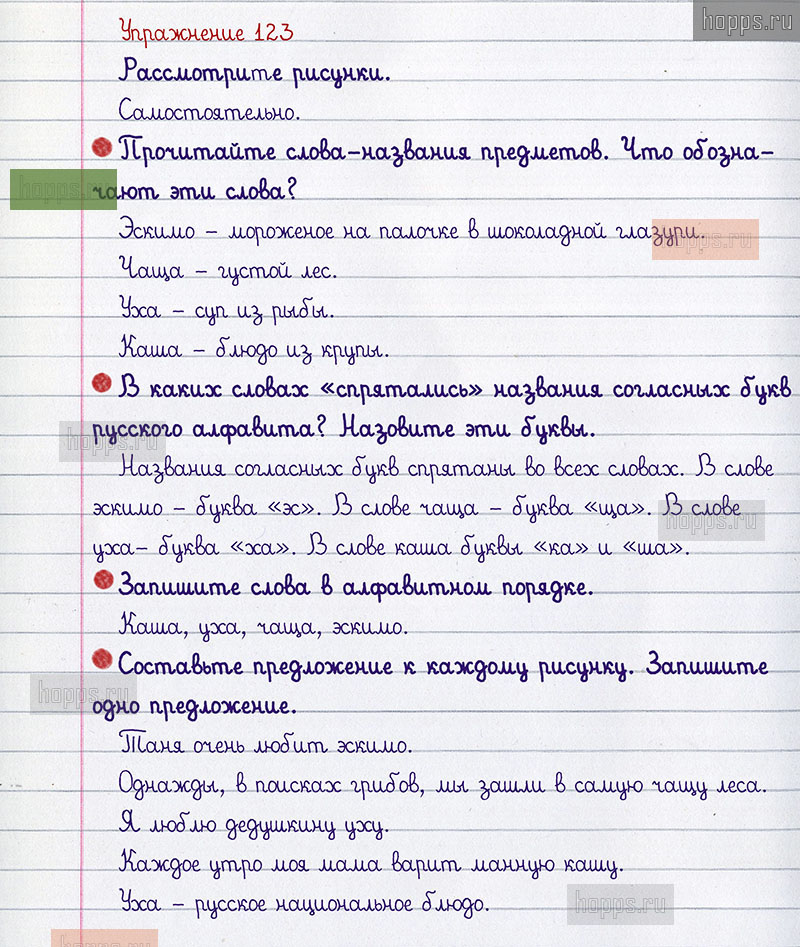 hopps.ru
Упражнение 123
Рассмотрите рисунки.
Самостоятельно.
Прочитайте слова-названия предметов. Что обозна-
hopps.ru
чают эти слова?
Эскимо - мороженое на палочке в шоколадной глазури.
hopps.ru
Чаща - густой лес.
Уха - суп из рыбы.
Каша - блюдо из крупы.
В каких словах «спрятались» названия согласных букв
русского алфавита? Назовите эти буквы.
hopps.ru
Названия согласных букв спрятаны во всех словах. В слове
эскимо - буква «эс». В слове чаща - буква «ща». В слове
hopps.ru
уха- буква «ха». В слове каша буквы «ка» и «ша».
Запишите слова в алфавитном порядке.
Каша, уха, чаща, эскимо.
Составьте предложение к каждому рисунку. Запишите
hopps.ru
одно предложение.
Таня очень любит эскимо.
Однажды, в поисках грибов, мы зашли в самую чащу леса.
Я люблю дедушкину уху.
Каждое утро моя мама варит манную кашу.
Уха - русское национальное блюдо.
hopps.ru
hopps.ru